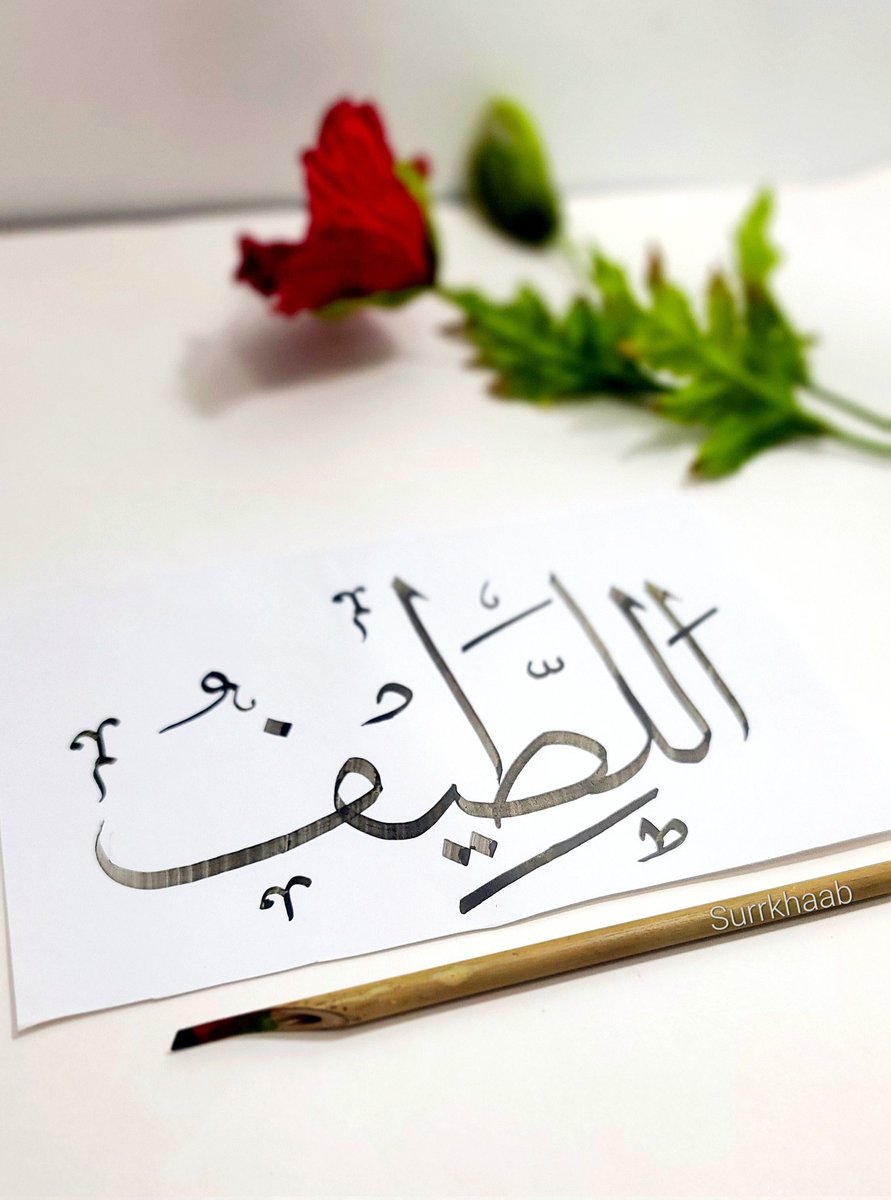 اَللَّطِيفُ
Surrkhaab